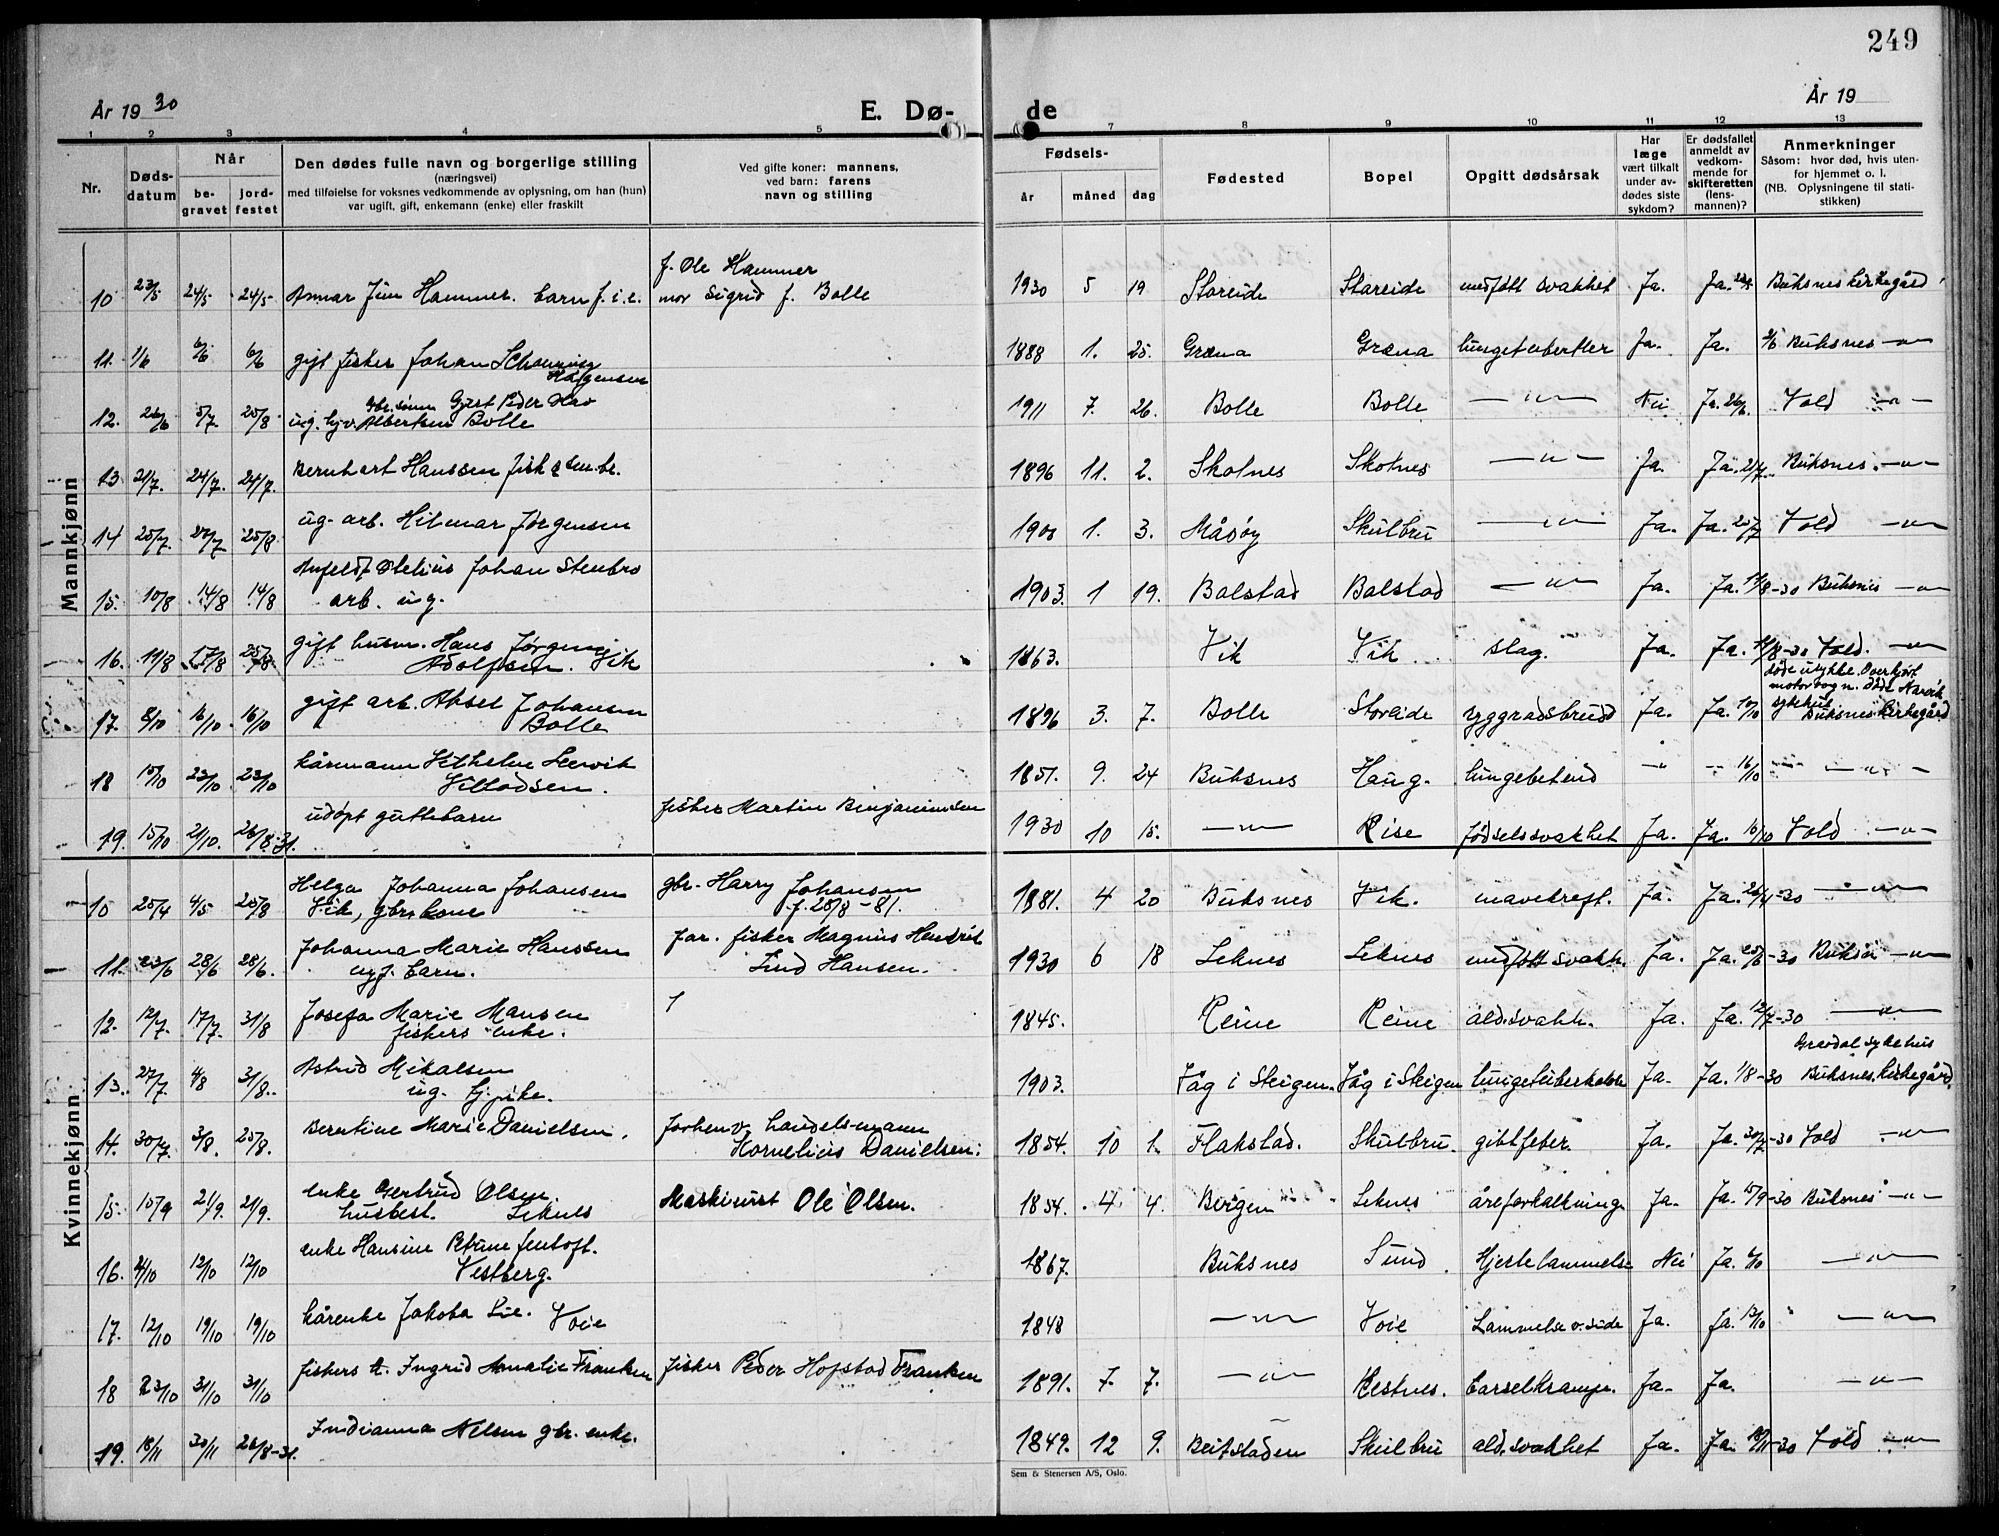 249
År 19 30
E. Dø-
de
År 19
1 2 3 4 5 7 8 9 10 11 12 13
Nr.
Døds-
datum
Når
be-
gravet
jord-
festet
Den dødes fulle navn og borgerlige stilling
(næringsvei)
med tilføielse for voksnes vedkommende av oplysning, om han (hun)
var ugift, gift, enkemann (enke) eller fraskilt
Ved gifte koner: mannens,
ved barn: farens
navn og stilling
Fødsels-
år
måned
dag
Fødested
Bopel
Opgitt dødsårsak
Har
læge
vært tilkalt
under av-
dødes siste
sykdom?
Er dødsfallet
anmeldt av
vedkom-
mende for
skifteretten
(lens-
mannen)?
Anmerkninger
Såsom: hvor død, hvis uten-
for hjemmet o. l.
(NB. Oplysningene til stati-
stikken)
Mannkjønn
f. Ole Hammer
10 23/5 24/5 24/5 Hammer. barn f. i. e. mor Sigrid f. Bolle 1930 5 19 Storeide Storeide medfött svakhet Ja. Ja. Buksnes kirkegård
11. 1/6 6/6 6/6 gift fisker Johan Schønning
Hågensen 1888 1. 25. Græna Græna lungetuberkler Ja. Ja. 2/6 Buksnes -"-
gbr. sønn Gjert Peder Hav
12. 26/6 5/7. 25/8 ug. Albertsen Bolle 1911 7. 26. Bolle Bolle -"- Nei Ja. 26/6. Vold -"-
13 21/7. 24/7. 24/7. Bernhart Hanssen fisk 1896 11. 2. Skotnes Skotnes -"- Ja. Ja. 21/7. Buksnes. -"-
14 25/7. 27/7 25/8 ug. arb. Hilmar Jørgensen 1. 3. Måsöy Skulbru -"- Ja. Ja. 25/7 Vold -"-
Olelius Johan Stenbro
15. 10/8 14/8 14/8 arb. ug. 1903. 1 19. Balstad Balstad -"- Ja. Ja. 11/8-30 Buksnes -"-
gift husm. Hans Jørgen
16. 11/8 17/8 25/8 Adolfsen. Vik 1863. Vik Vik slag. Ja. Ja. 11/8-30 Vold. -"-
Døde ulykke. Overkjørt
motorvogn. døde Narvik
sykehus
gift arb. Aksel Johansen
17. 8/10 16/10. 16/10 Bolle 1896 3. 7. Bolle Storeide ryggradsbrudd Ja. Ja. 10/10 Buksnes kirkegård
kårmann Vilhelm Leervik
18 15/10 23/10 23/10 Villadsen. 1851. 9. 24 Buksnes Haug. lungebetend -" -- 16/10 -"-
19. 15/10 21/10. 26/8-31. udöpt guttebarn fisker Martin Benjaminsen 1930 10 15. -"- Rise födselssvakhet Ja. Ja. 16/10 Vold -"-
Kvinnekjønn
Helga Johanna Johansen gbr. Harry Johansen
10 25/4 4/5 25/8 Vik, gbr. kone f. 25/8 - 81. 1881. 4 20 Buksnes Vik. mavekreft. Ja. Ja. 26/4-30 -"-
Johanna Marie Hanssen far. fisker Magnus Hendrik
11. 23/6 28/6 28/6. barn. Hansen. 1930 6 18 Leknes Leknes medfött svakh. Ja. Ja. 25/6-30 Buksn -"-
Josefa Marie Hansen
12. 12/7. 17/7. 31/8 fiskers enke. 1845. Reine Reine ald.svakh. Ja. Ja. 12/7-30 -"-
Gravdal sykehus
Astrid Mikalsen
13. 27/7 4/8 31/8. ug. tj.pike. 1903. Våg i Steigen. Våg i Steigen lungetuberkulose Ja. Ja. 1/8-30 Buksnes kirkegård.
Berntine Marie Danielsen. forhenv. handelsmann
14. 30/7. 3/8. 25/8. Kornelius Danielsen. 1854. 10 1. Flakstad. Skulbru. giktfeber. Ja. Ja. 30/7-30 Vold -"-
enke Gertrud Olsen.
15. 15/9 21/9. 21/9. husbest. Leknes Maskinist Ole Olsen. 1854. 4 4. Bergen Leknes åreforkalkning. Ja. Ja. 15/9-30 Buksnes -"-
enke Hansine Petrine Jentoft.
16. 4/10 12/10 12/10 Vestberg. 1867. Buksnes Sund. Hjertelammelse Nei Ja. 6/10 -"-
17. 12/10 19/10 19/10 kårenke Jakoba Lie. Voie 1848 -"- Voie Lammelse v. side Ja. Ja. 13/10 -"-
18 23/10 31/10 31/10 fiskers k. Ingrid Amalie Franken fisker Peder Hofstad Franken 1891. 7. 7. -"- Restnes. barselkrampe. Ja. Ja. -"-
19. 18/11 30/11 26/8-31. Indianna Nilsen gbr. enke. 1849. 12 9. Beitstaden Skulbru ald.svakhet Ja. Ja. 18/11-30 Vold -"-
Sem & Stenersen A/S, Oslo.